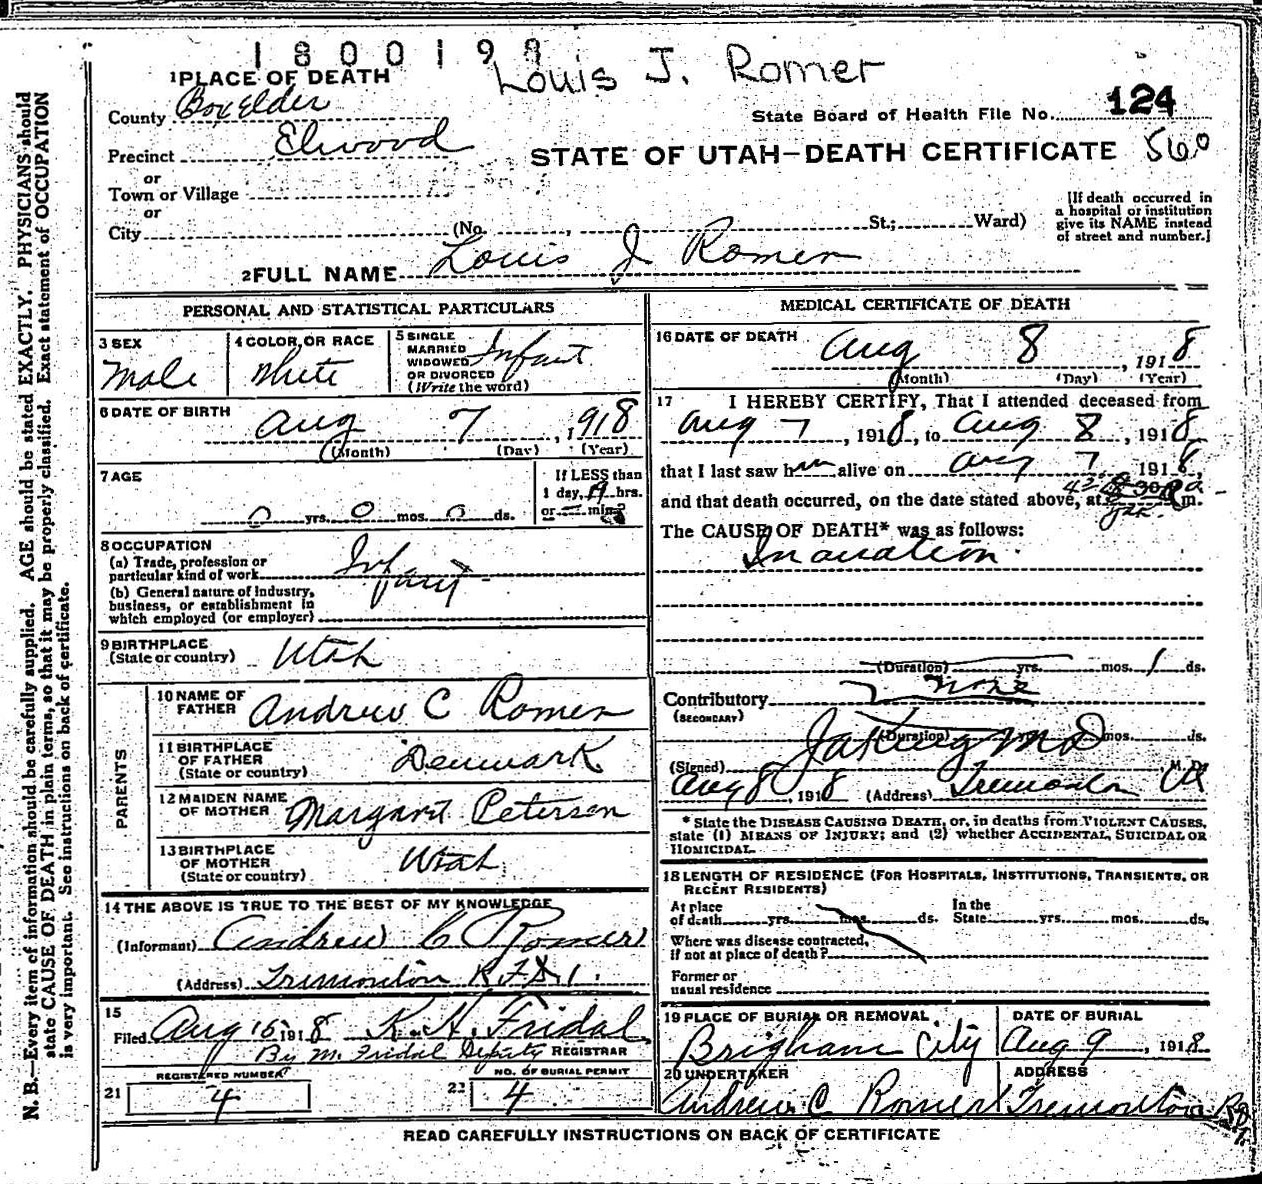 1800198
Louis J. Romer
1 PLACE OF DEATH
County Box Elder
State Board of Health File No. 124
Precinct Elwood
STATE OF UTAH—DEATH CERTIFICATE 560
or
Town or Village
or
City (No. , St.; Ward)
[If death occurred in
a hospital or institution
give its NAME instead
of street and number.]
2 FULL NAME Louis J Romer
PERSONAL AND STATISTICAL PARTICULARS
3 SEX
Male
4 COLOR OR RACE
White
5 SINGLE
MARRIED
WIDOWED
OR DIVORCED
(Write the word)
Infant
6 DATE OF BIRTH
Aug 7, 1918
(Month) (Day) (Year)
7 AGE
0 yrs. 0 mos. 0 ds.
If LESS than
1 day, 19 hrs.
or min?
8 OCCUPATION
(a) Trade, profession or
particular kind of work Infant
(b) General nature of Industry,
business, or establishment in
which employed (or employer)
9 BIRTHPLACE
(State or country) Utah
PARENTS
10 NAME OF
FATHER Andrew C Romer
11 BIRTHPLACE
OF FATHER
(State or country) Denmark
12 MAIDEN NAME
OF MOTHER Margaret Peterson
13 BIRTHPLACE
OF MOTHER
(State or country) Utah
14 THE ABOVE IS TRUE TO THE BEST OF MY KNOWLEDGE
(Informant) Andrew C Romer
(Address) Tremonton R.F.D. 1.
15
Filed Aug 15 1918 K. H. Fridal
By M. Fridal Deputy REGISTRAR
REGISTERED NUMBER
21 4
NO. OF BURIAL PERMIT
22 4
MEDICAL CERTIFICATE OF DEATH
16 DATE OF DEATH
Aug 8, 1918
(Month) (Day) (Year)
17 I HEREBY CERTIFY, That I attended deceased from
Aug 7, 1918, to Aug 8, 1918
that I last saw him alive on Aug 7 1918,
and that death occurred, on the date stated above, at m.
The CAUSE OF DEATH* was as follows:
Inanation
(Duration) yrs. mos. 1 ds.
Contributory none
(SECONDARY)
(Duration) mos. ds.
(Signed) M.D.
Aug 8, 1918 (Address) Tremonton Ut
* State the DISEASE CAUSING DEATH, or, in deaths from VIOLENT CAUSES,
state (1) MEANS OF INJURY; and (2) whether ACCIDENTAL, SUICIDAL OR
HOMICIDAL.
18 LENGTH OF RESIDENCE (FOR HOSPITALS, INSTITUTIONS, TRANSIENTS, OR
RECENT RESIDENTS)
At place
of death yrs. mos. ds.
In the
State yrs. mos. ds.
Where was disease contracted,
if not at place of death?
Former or
usual residence
19 PLACE OF BURIAL OR REMOVAL
Brigham City
DATE OF BURIAL
Aug 9, 1918
20 UNDERTAKER
Andrew C Romer
ADDRESS
Tremonton
READ CAREFULLY INSTRUCTIONS ON BACK OF CERTIFICATE
N. B.—Every item of information should be carefully supplied. AGE should be stated EXACTLY. PHYSICIANS should
state CAUSE OF DEATH in plain terms, so that it may be properly classified. Exact statement of OCCUPATION
is very important. See instructions on back of certificate.